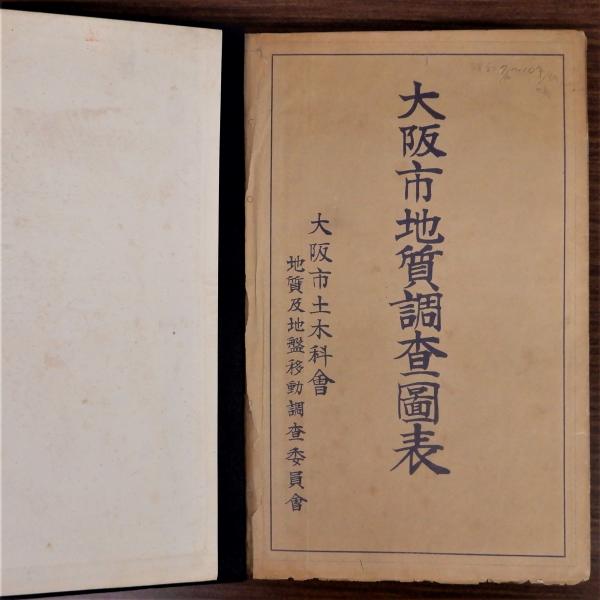 大阪市地質調査圖表
大阪市土木科會
地質及地盤移動調査委員會